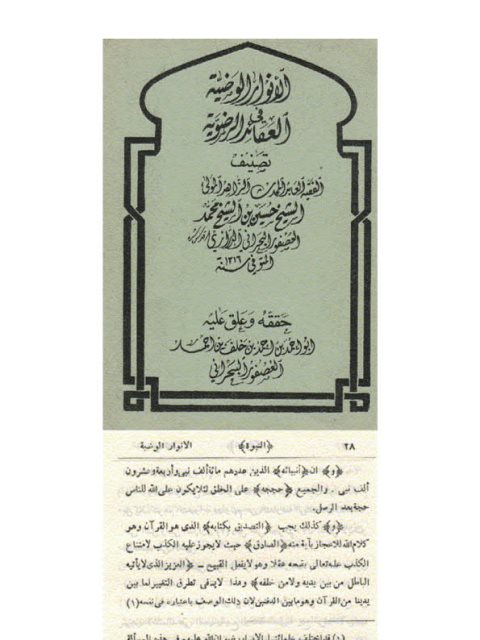 الأنوار الوضية
في
العقائد الرضوية
تصنيف
الفقيه العابد المحدث الزاهد المولى
الشيخ حسين بن الشيخ محمد
العصفور البحراني الدرازي
المتوفى سنة ١٢١٦
حققه وعلق عليه
ابو احمد بن احمد بن خلف بن احمد
العصفور البحراني
٢٨ ﴿النبوة﴾ الانوار الوضية
﴿و﴾ ان ﴿أنبيائه﴾ الذين عددهم مائة ألف نبي وأربعة وعشرون
ألف نبي والجميع ﴿حججه﴾ على الخلق لئلا يكون على الله للناس
حجة بعد الرسل.
﴿و﴾ كذلك يجب ﴿التصديق بكتابه﴾ الذي هو القرآن وهو
كلام الله للاعجاز بآية منه ﴿الصادق﴾ حيث لا يجوز عليه الكذب لامتناع
الكذب عليه تعالى بقبحه عقلا وهو لا يفعل القبيح - ﴿العزيز الذي لا يأتيه
الباطل من بين يديه ولا من خلفه﴾ وهذا لا ينافي تطرق التغيير لما بين
يدينا من القرآن وهو ما بين الدفتين لان ذلك الوصف باعتباره في نفسه (١)